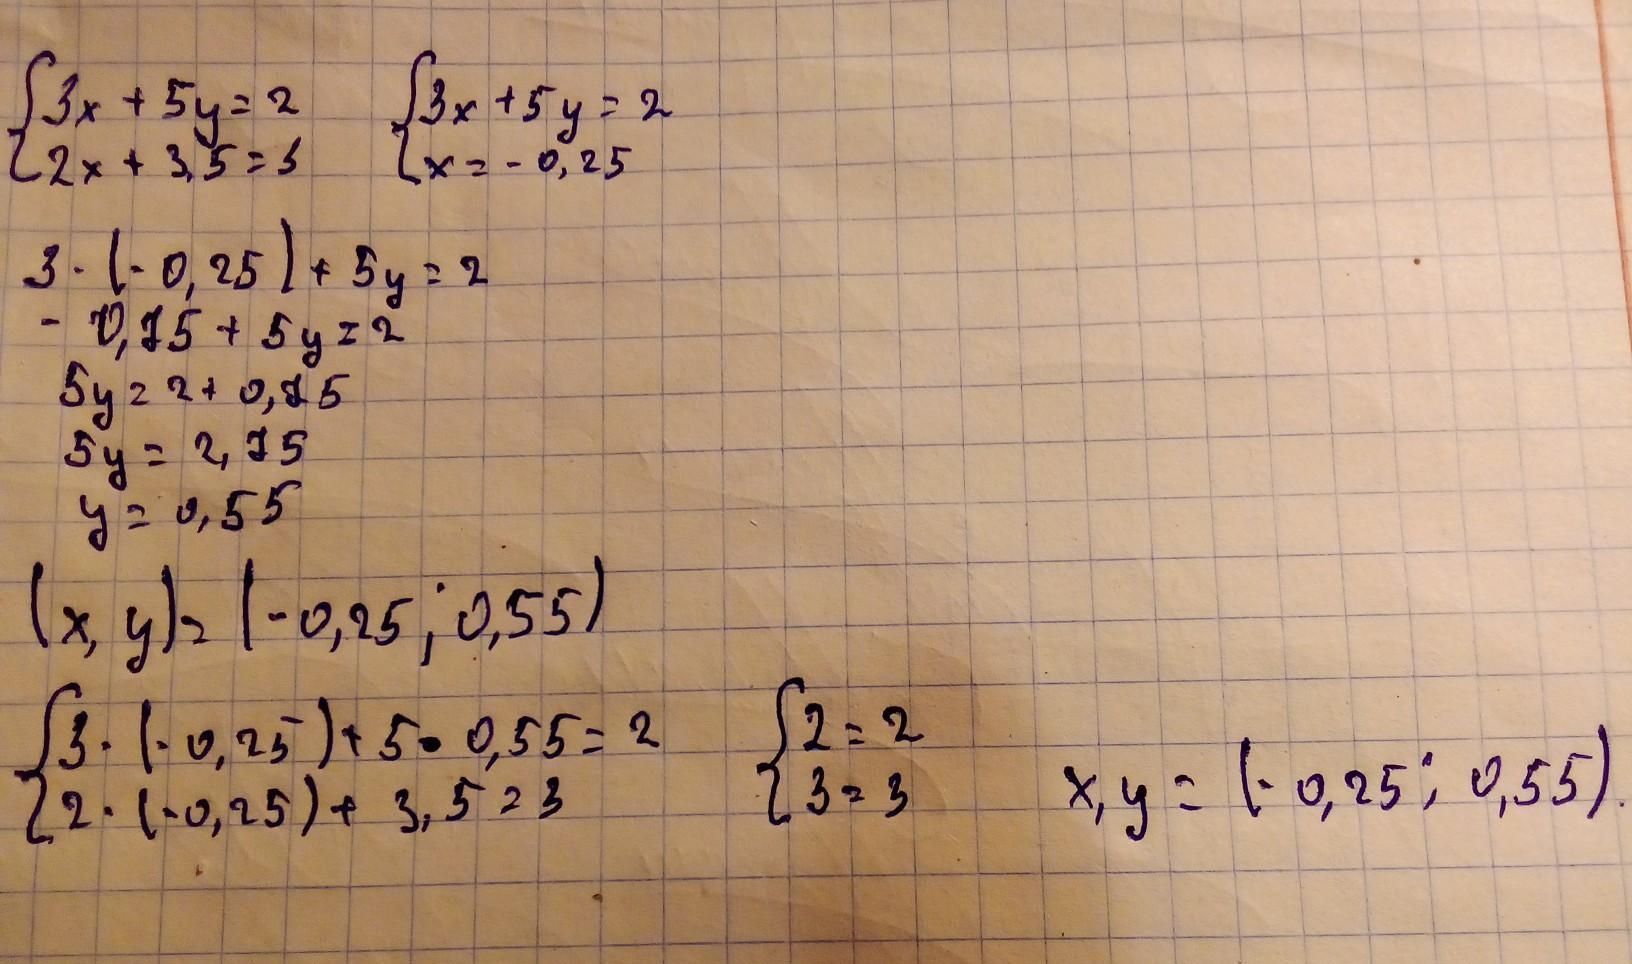 {3x + 5y = 2
{2x + 3,5 = 3
{3x + 5y = 2
{x = - 0,25
3 · (- 0,25) + 5y = 2
- 0,75 + 5y = 2
5y = 2 + 0,75
5y = 2,75
y = 0,55
(x, y) = (-0,25 ; 0,55)
{3 · (- 0,25) + 5 • 0,55 = 2
{2 · (-0,25) + 3,5 = 3
{2 = 2
{3 = 3
x, y = (- 0,25 ; 0,55).